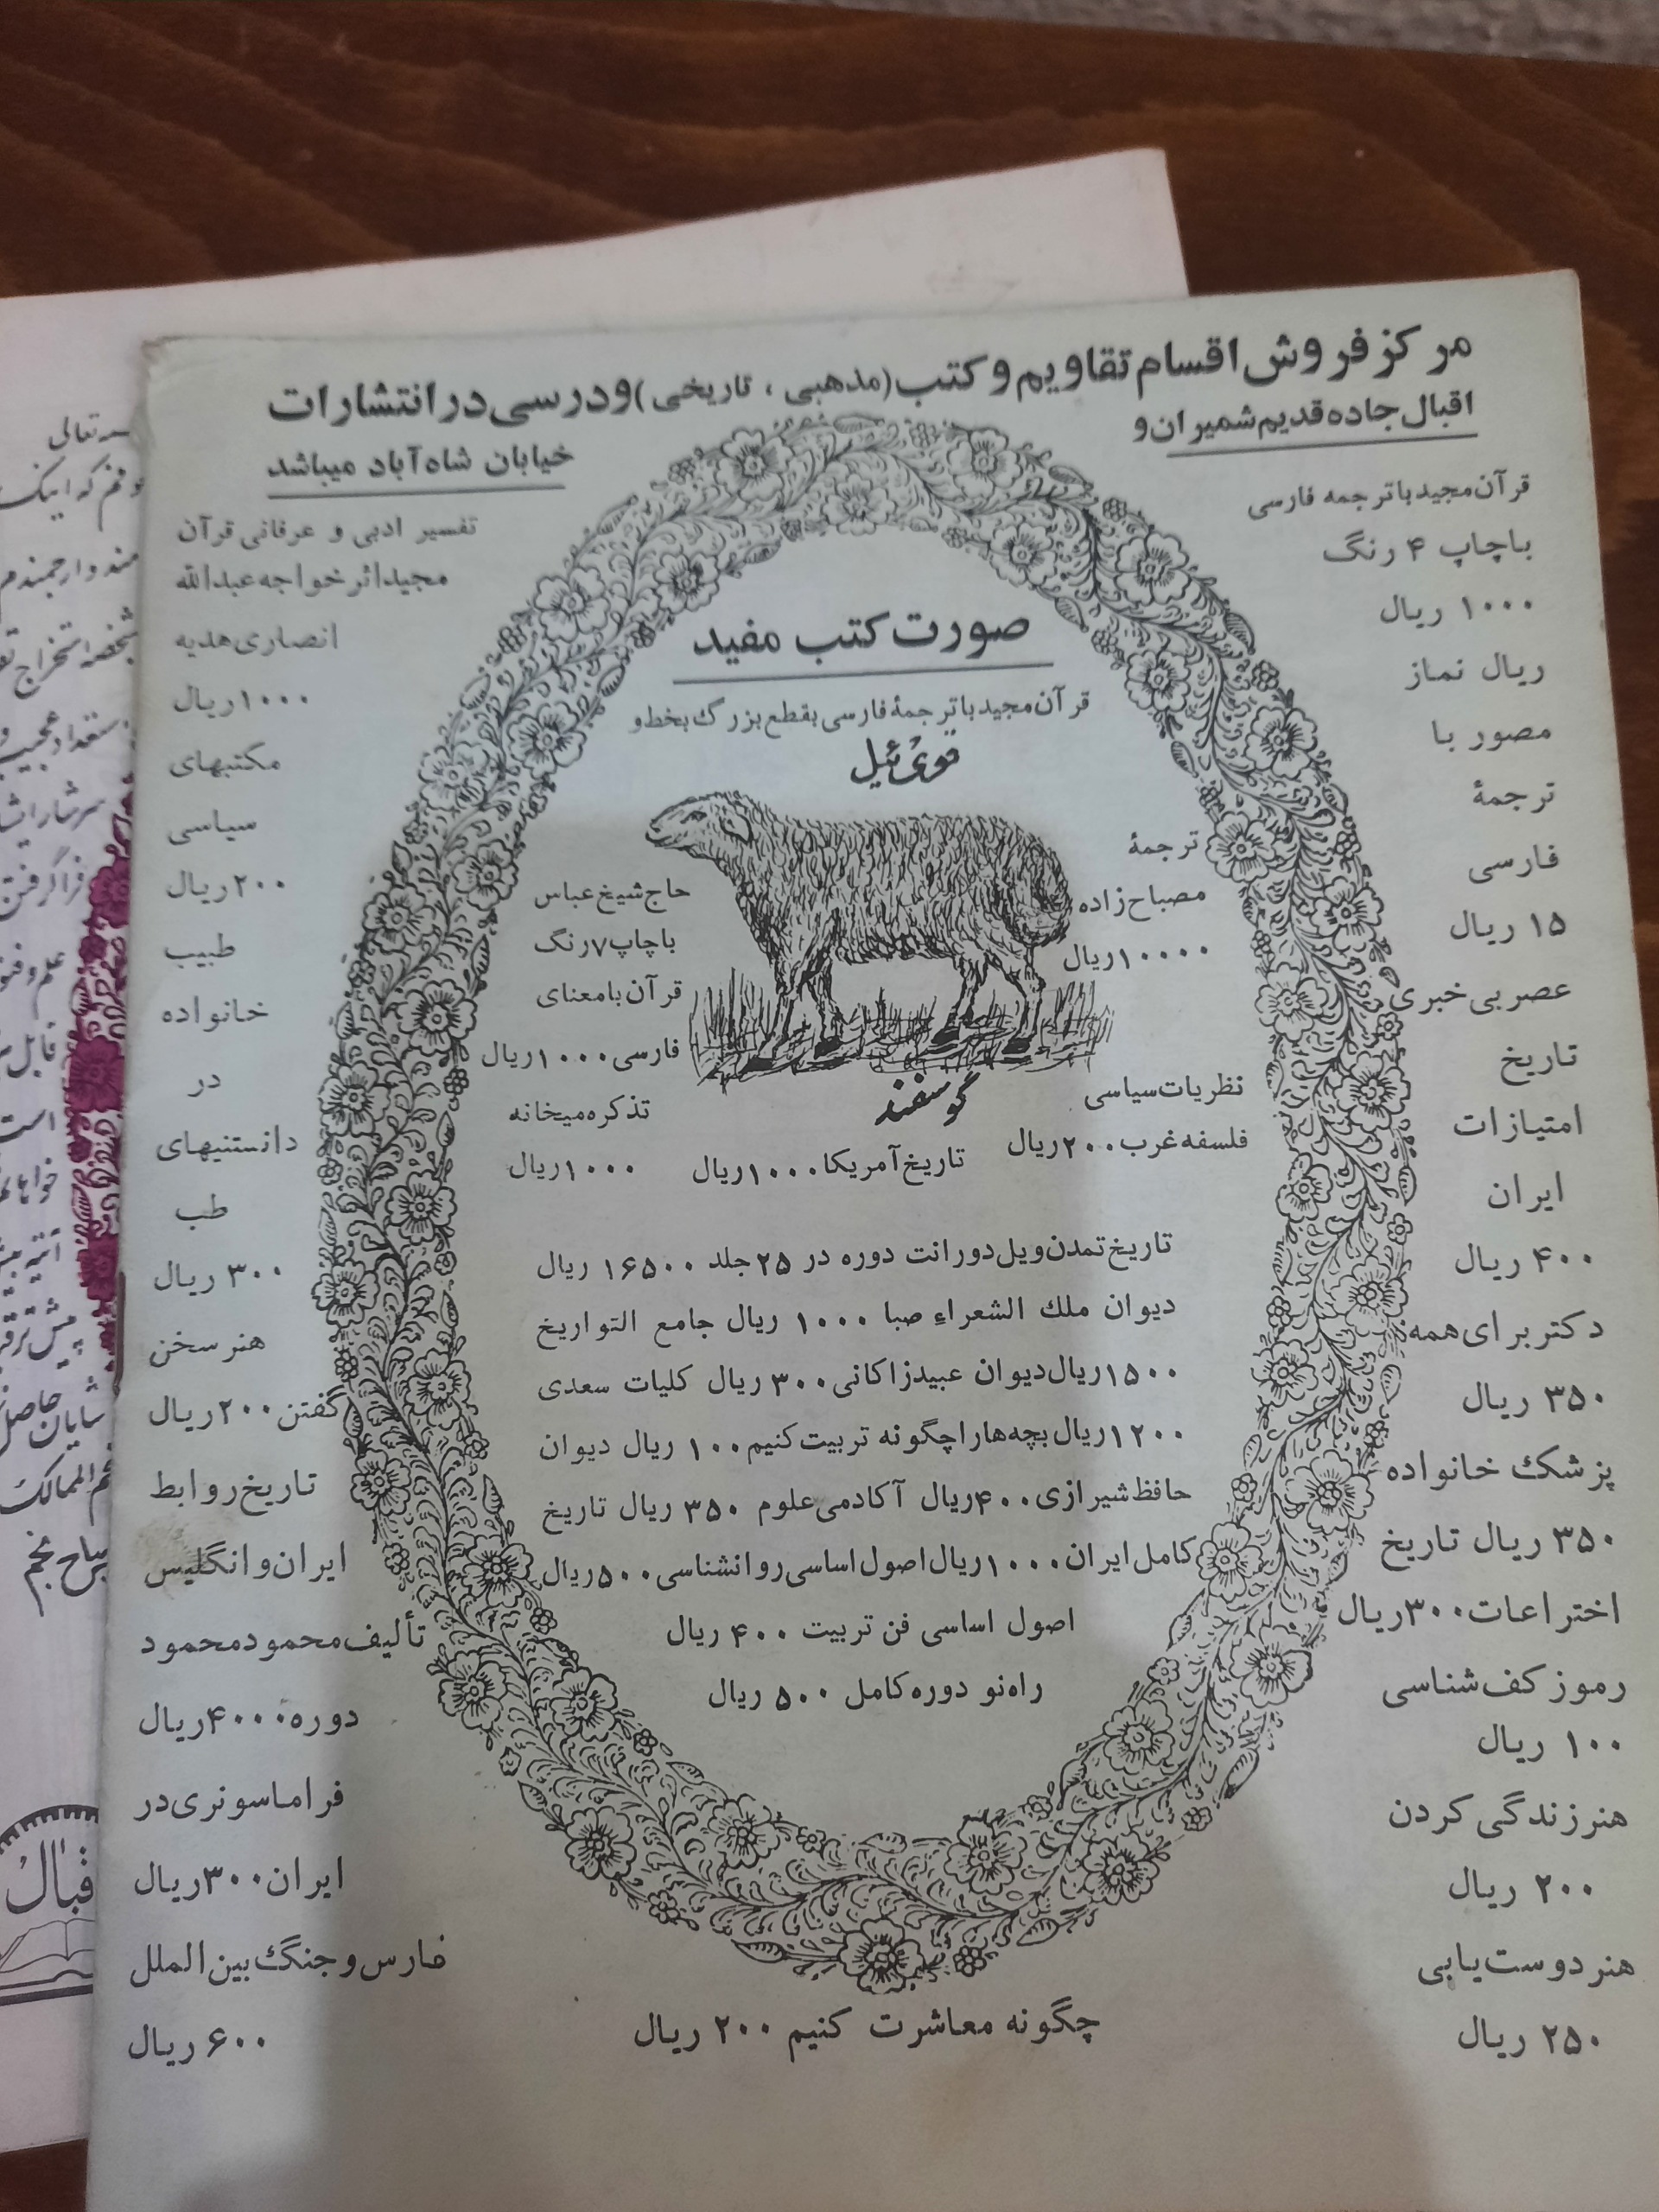 مرکز فروش اقسام تقاویم و کتب (مذهبی ، تاریخی) و درسی در انتشارات
اقبال جاده قدیم شمیران و
خیابان شاه آباد میباشد
قرآن مجید با ترجمه فارسی
با چاپ ۴ رنگ
۱۰۰۰ ریال
ریال نماز
مصور با
ترجمهٔ
فارسی
۱۵ ریال
عصر بی خبری
تاریخ
امتیازات
ایران
۴۰۰ ریال
دکتر برای همه
۳۵۰ ریال
پزشک خانواده
۳۵۰ ریال تاریخ
اختراعات ۳۰۰ ریال
رموز کف شناسی
۱۰۰ ریال
هنر زندگی کردن
۲۰۰ ریال
هنر دوست یابی
۲۵۰ ریال
صورت کتب مفید
قرآن مجید با ترجمهٔ فارسی بقطع بزرگ بخط و
قوی ئیل
ترجمهٔ
مصباح زاده
۱۰۰۰۰ ریال
حاج شیخ عباس
با چاپ ۷ رنگ
قرآن با معنای
فارسی ۱۰۰۰ ریال
گوسفند
نظریات سیاسی
فلسفه غرب ۲۰۰ ریال
تاریخ آمریکا ۱۰۰۰ ریال
تذکره میخانه
۱۰۰۰ ریال
تاریخ تمدن ویل دورانت دوره در ۲۵ جلد ۱۶۵۰۰ ریال
دیوان ملک الشعراء صبا ۱۰۰۰ ریال جامع التواریخ
۱۵۰۰ ریال دیوان عبید زاکانی ۳۰۰ ریال کلیات سعدی
۱۲۰۰ ریال بچه ها را چگونه تربیت کنیم ۱۰۰ ریال دیوان
حافظ شیرازی ۴۰۰ ریال آکادمی علوم ۳۵۰ ریال تاریخ
کامل ایران ۱۰۰۰ ریال اصول اساسی روانشناسی ۵۰۰ ریال
اصول اساسی فن تربیت ۴۰۰ ریال
راه نو دوره کامل ۵۰۰ ریال
چگونه معاشرت کنیم ۲۰۰ ریال
تفسیر ادبی و عرفانی قرآن
مجید اثر خواجه عبدالله
انصاری هدیه
۱۰۰۰ ریال
مکتبهای
سیاسی
۲۰۰ ریال
طبیب
خانواده
در
دانستنیهای
طب
۳۰۰ ریال
هنر سخن
گفتن ۲۰۰ ریال
تاریخ روابط
ایران و انگلیس
تألیف محمود محمود
دوره ۴۰۰۰ ریال
فراماسونری در
ایران ۳۰۰ ریال
فارس و جنگ بین الملل
۶۰۰ ریال